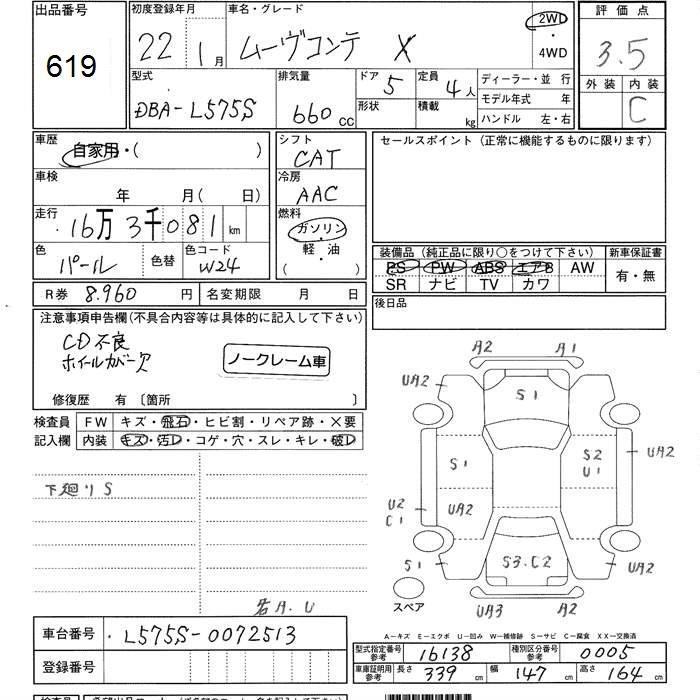 出品番号
619
初度登録年月
22年 1月
車名・グレード
ムーヴコンテ X
2WD
・
4WD
評価点
3.5
外装 内装
C
型式
DBA-L575S
排気量
660 CC
ドア 5
形状
定員 4人
積載 kg
ディーラー・並 行
モデル年式 年
ハンドル 左・右
車歴
自家用・( )
車検
年 月( 日)
走行
16万3千081 km
色
パール
色替
色コード
W24
シフト
CAT
冷房
AAC
燃料
ガソリン
軽・油
( )
セールスポイント (正常に機能するものに限ります)
装備品 (純正品に限り○をつけて下さい)
PS PW ABS エアB AW
SR ナビ TV カワ
新車保証書
有・無
後日品
R券 8.960 円
名変期限 月 日
注意事項申告欄(不具合内容等は具体的に記入して下さい)
CD不良
ホイールカバー欠
ノークレーム車
修復歴 有 〔箇所 〕
検査員
記入欄
FW キズ・飛石・ヒビ割・リペア跡・×要
内装 キズ・汚レ・コゲ・穴・スレ・キレ・破レ
下廻りS
若A.U
A2 A1
UA2 S1 UA2
S1 S2 U1 UA2
U2 C1 UA2
S1 S3.C2 UA2
スペア
UA3 A2
A-キズ E-エクボ U-凹み W-補修跡 S-サビ C-腐食 XX-交換済
車台番号 L575S-0072513
登録番号
型式指定番号 参考 16138
種別区分番号 参考 0005
車庫証明用 参考 長さ 339 cm 幅 147 cm 高さ 164 cm